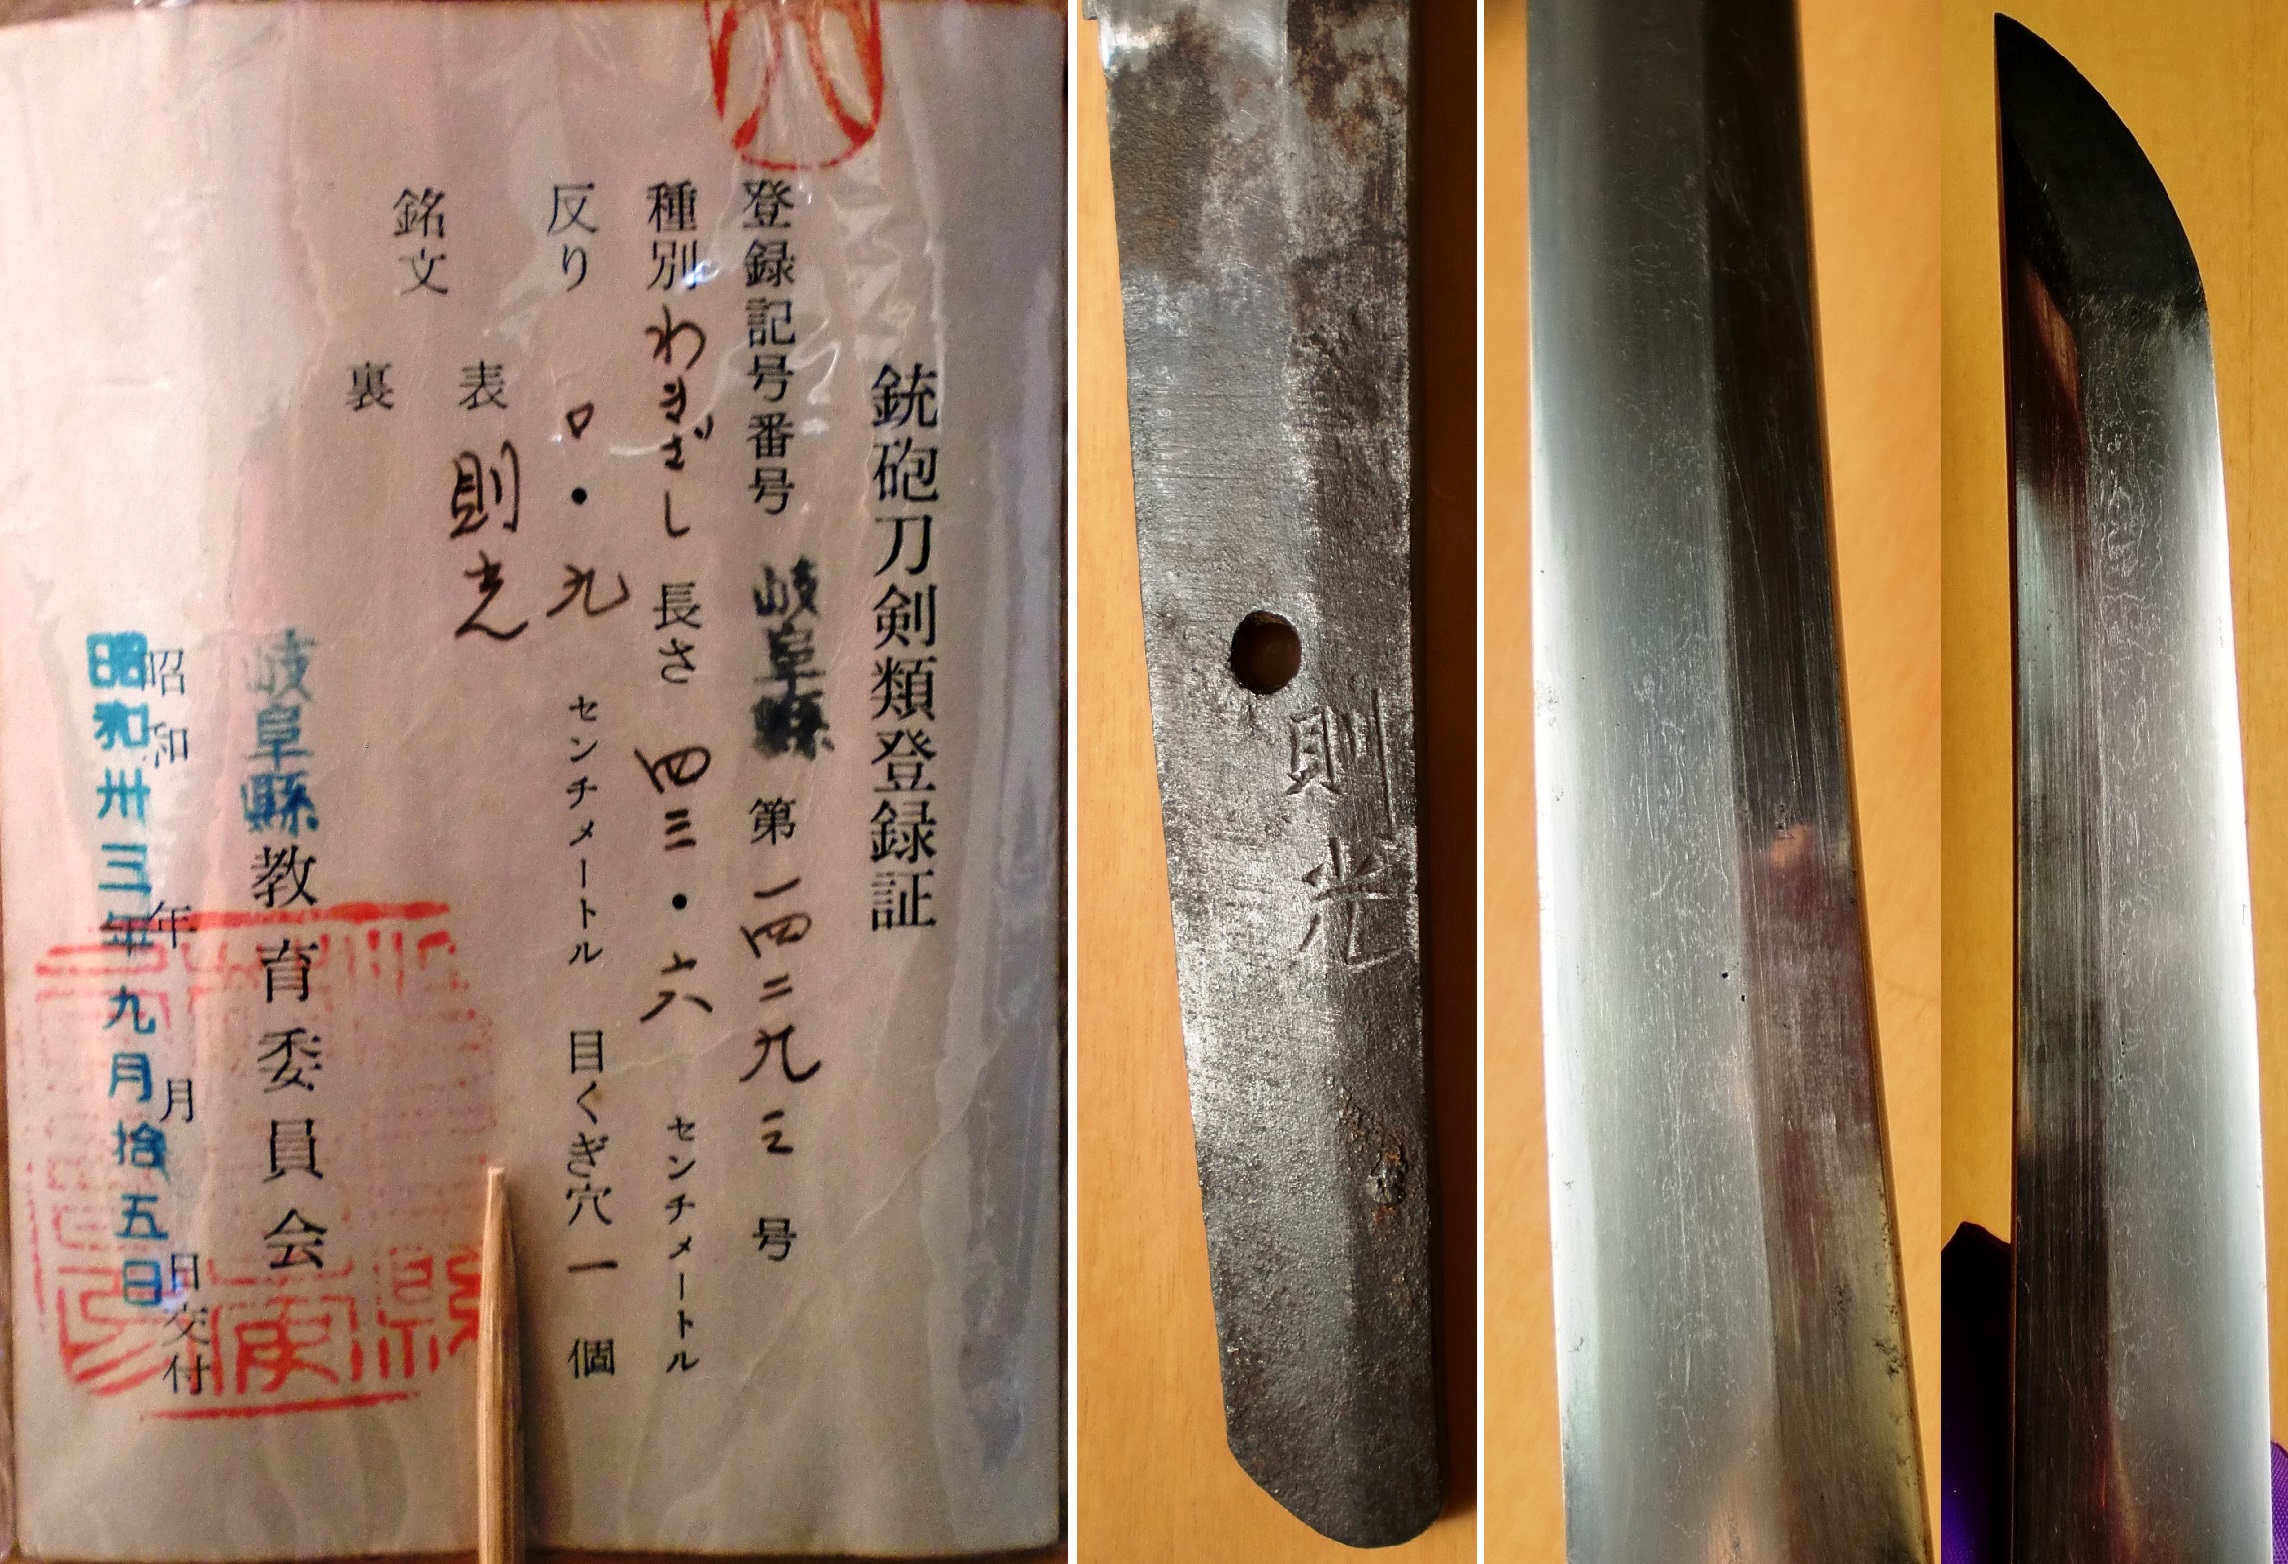 銃砲刀剣類登録証
登録記号番号 岐阜縣 第一四二九三号
種別 わきざし 長さ 四三・六 センチメートル
反り 〇・九 センチメートル 目くぎ穴 一 個
銘文
表 則光
裏
岐阜縣教育委員会
昭和 年 月 日交付
昭和卅三年九月拾五日
則光